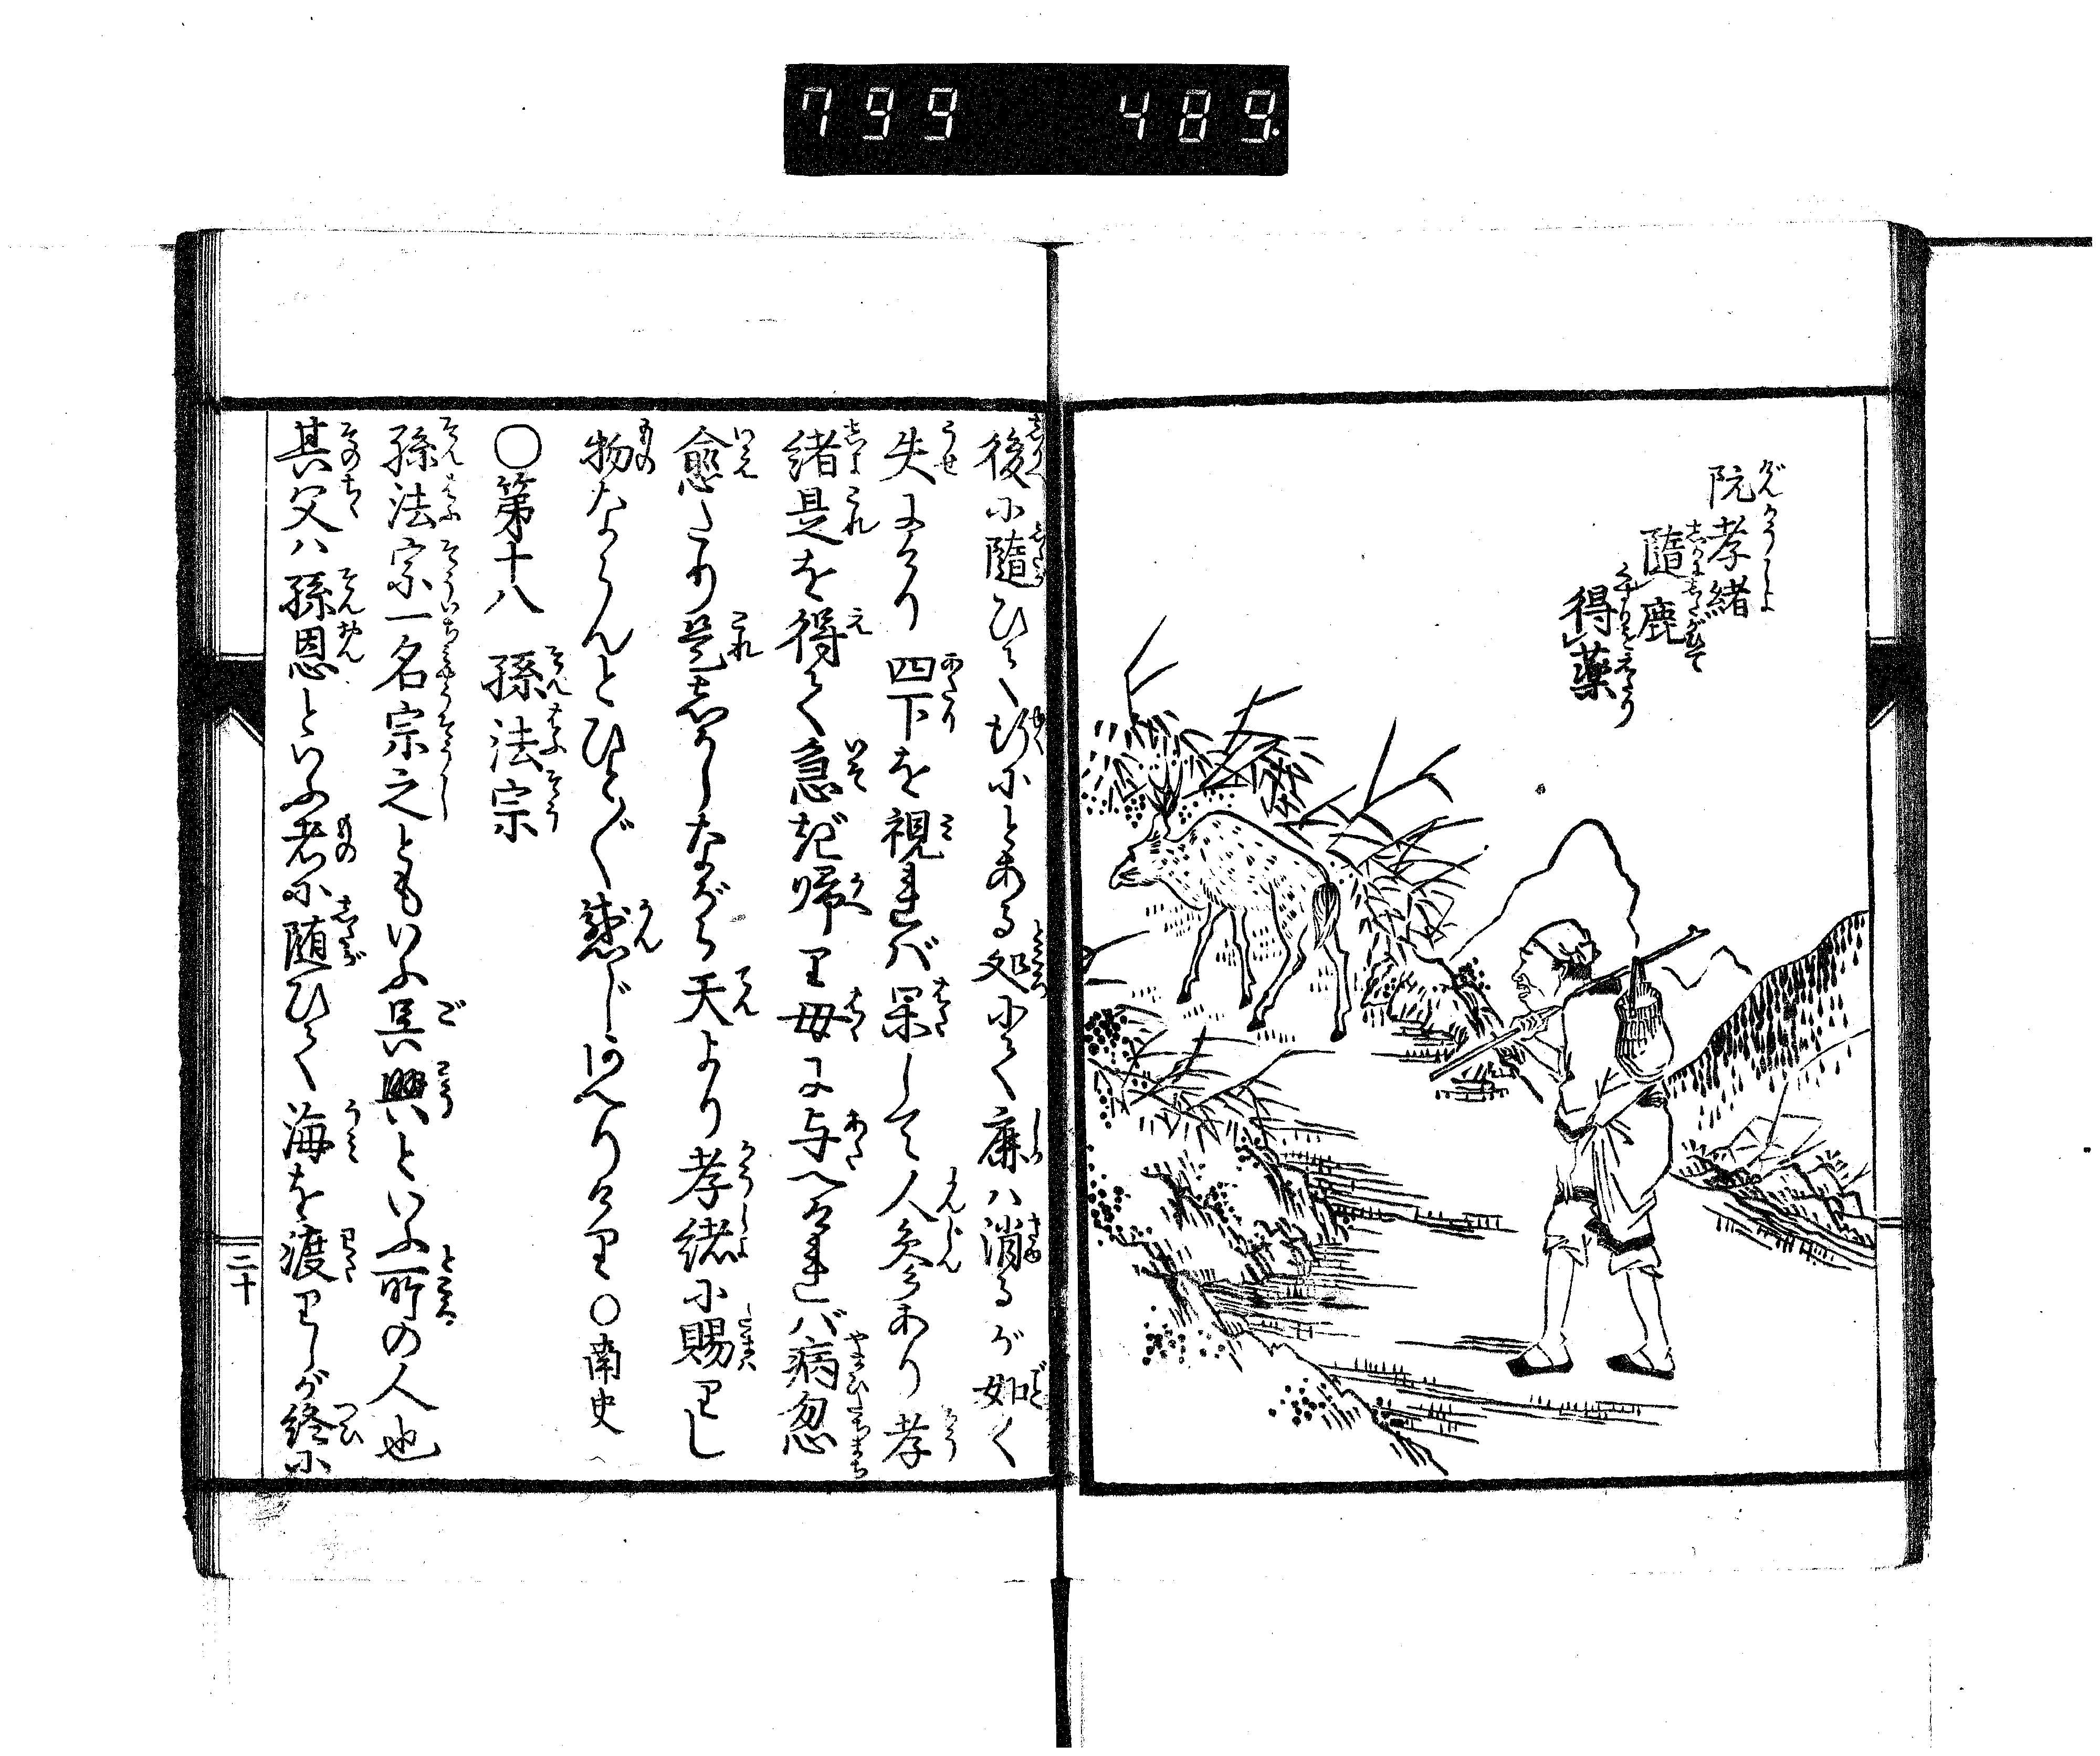 799 489.
阮孝緒
随鹿
得薬
後に随ひて行にとある処にて鹿ハ消るが如く
失にけり四下を視れバ果して人参あり孝
緒是を得て急ぎ帰り母に与へけれバ病忽
愈たり是しかしながら天より孝緒に賜りし
物ならんとひとびと感じあへりけり○南史
○第十八 孫法宗
孫法宗一名宗之ともいふ呉興といふ所の人也
其父ハ孫恩といふ者に随ひて海を渡りしが終に
二十